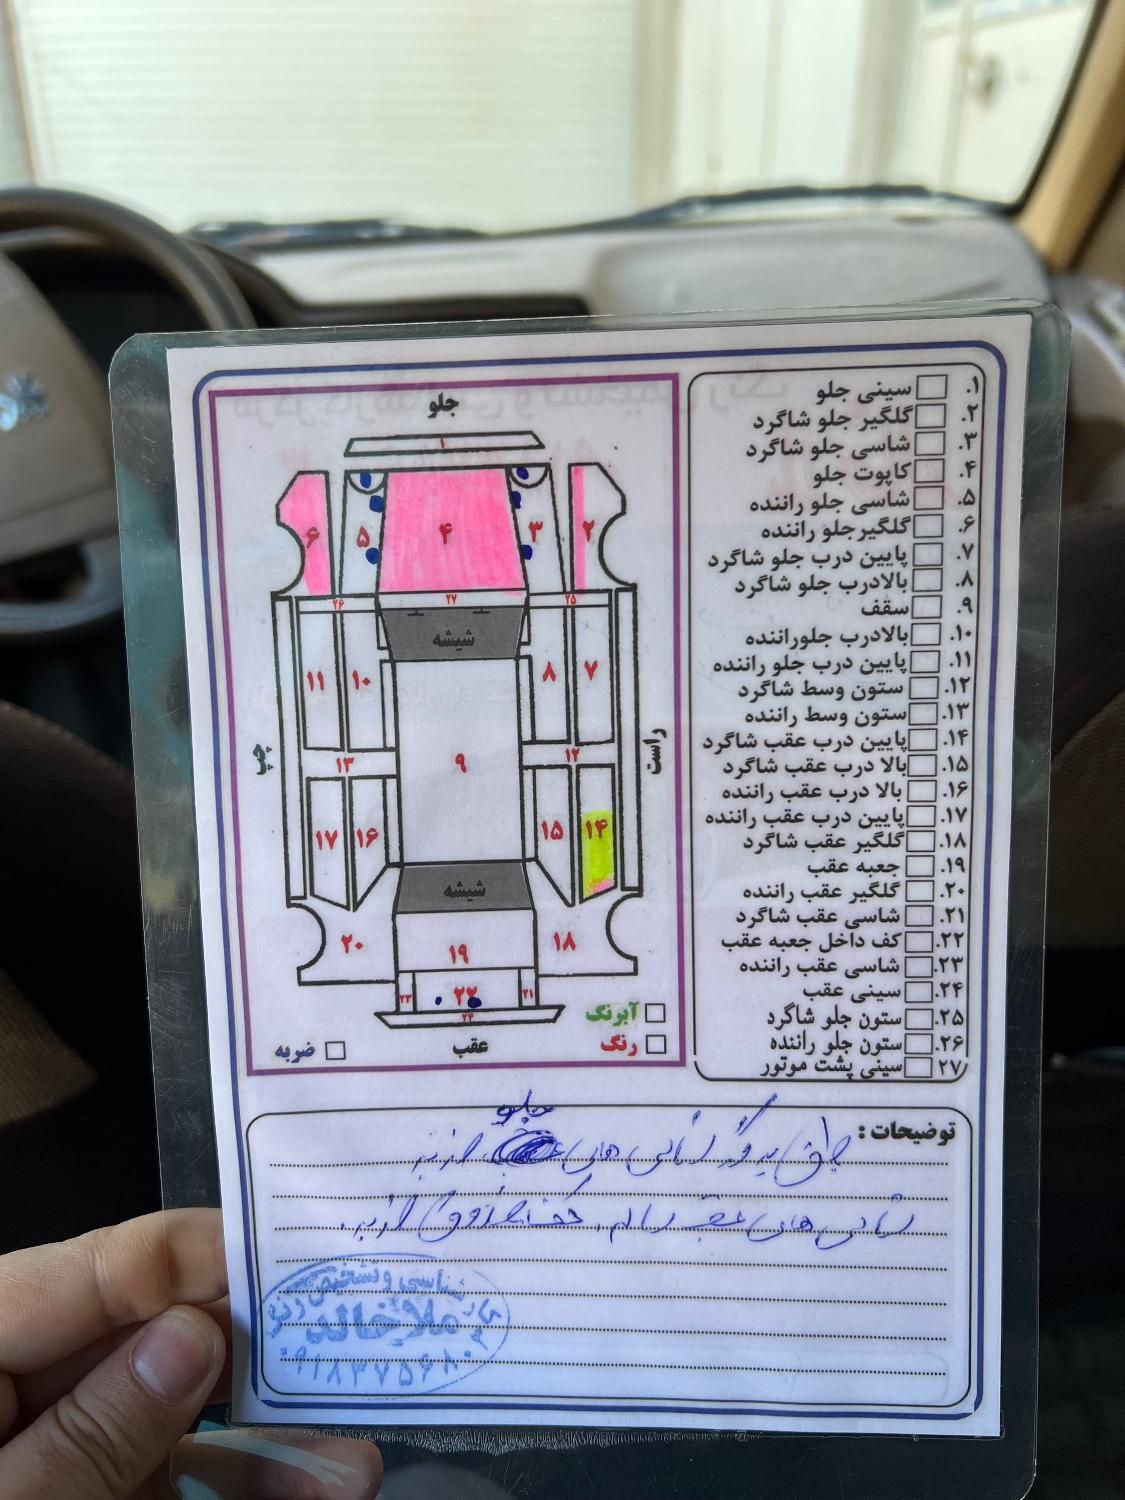 جلو
۱
۶
۵
۴
۳
۲
۲۶
۲۷
۲۵
شیشه
۱۱
۱۰
۸
۷
چپ
راست
۱۳
۹
۱۲
۱۷
۱۶
۱۵
۱۴
شیشه
۲۰
۱۹
۱۸
۲۳
۲۲
۲۱
۲۴
آبرنگ
رنگ
ضربه
عقب
۱. سینی جلو
۲. گلگیر جلو شاگرد
۳. شاسی جلو شاگرد
۴. کاپوت جلو
۵. شاسی جلو راننده
۶. گلگیرجلو راننده
۷. پایین درب جلو شاگرد
۸. بالادرب جلو شاگرد
۹. سقف
۱۰. بالادرب جلوراننده
۱۱. پایین درب جلو راننده
۱۲. ستون وسط شاگرد
۱۳. ستون وسط راننده
۱۴. پایین درب عقب شاگرد
۱۵. بالا درب عقب شاگرد
۱۶. بالا درب عقب راننده
۱۷. پایین درب عقب راننده
۱۸. گلگیر عقب شاگرد
۱۹. جعبه عقب
۲۰. گلگیر عقب راننده
۲۱. شاسی عقب شاگرد
۲۲. کف داخل جعبه عقب
۲۳. شاسی عقب راننده
۲۴. سینی عقب
۲۵. ستون جلو شاگرد
۲۶. ستون جلو راننده
۲۷. سینی پشت موتور
توضیحات :
جلو
شاسی های ضربه
شاسی های عقب سالم. کف صندوق ضربه.
کارشناسی و تشخیص رنگ
ملاخالد